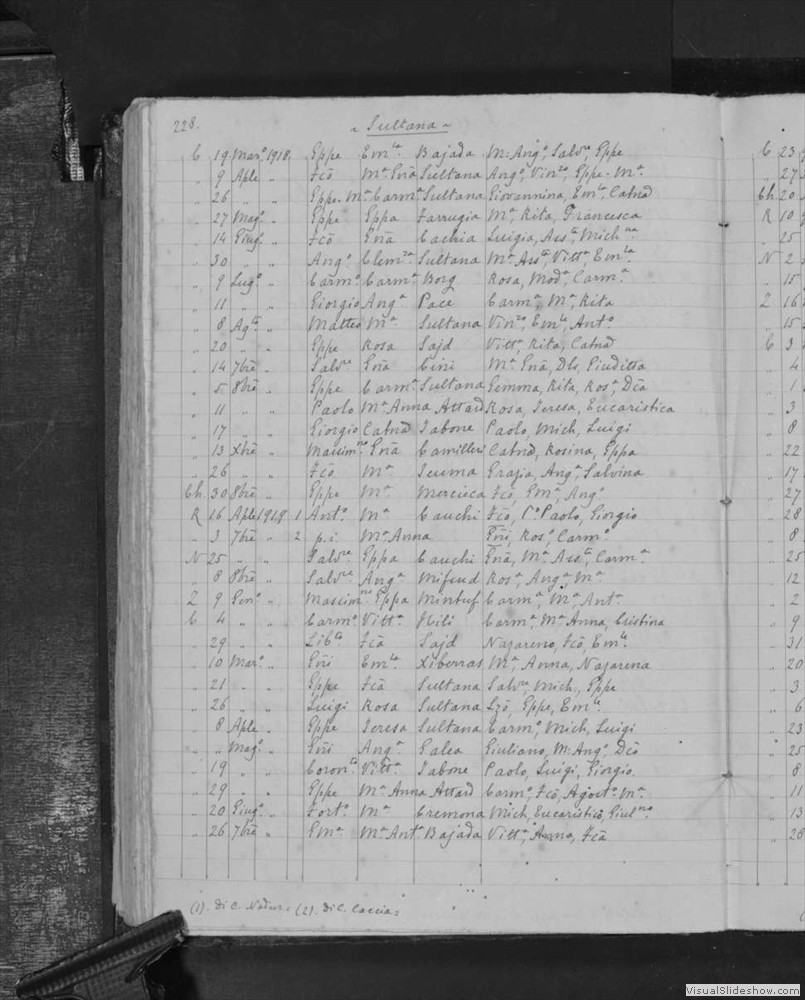 228.
~ Sultana ~
C 19 Mar.º 1918. Eppe Em.la Bajada M: Ang.º, Salv.re, Eppe
„ 9 Aple „ „ Fcõ M.a Gnã Sultana Ang.º, Vin.zo, Eppe. M.a
„ 26 „ „ Eppe. M.a Carm.a Sultana Giovannina, Em.le, Catnã
„ 27 Mag.º „ Eppe Eppa Farrugia M.a Rita, Francesca
„ 14 Giug.º „ Fcõ Gnã Cachia Luigia, Ass.ta, Mich.na
„ 30 „ „ Ang.º Clem.za Sultana M.a Ass.ta, Vitt.a, Em.la
„ 9 Lug.º „ Carm.º Carm.a Borg Rosa, Mod.a, Carm.a
„ 11 „ „ Giorgio Ang.a Pace Carm.a, M.a Rita
„ 8 Ag.to „ Matteo M.a Sultana Vin.zo, Em.le, Ant.º
„ 20 „ „ Eppe Rosa Sajd Vitt.a, Rita, Catnã
„ 14 7bre „ Salv.re Gnã Cini M.a Gnã, Dls, Giuditta
„ 5 8bre „ Eppe Carm.a Sultana Gemma, Rita, Ros.a, Dcã
„ 11 „ „ Paolo M.a Anna Attard Rosa, Teresa, Eucaristica
„ 17 „ „ Giorgio Catnã Tabone Paolo, Mich, Luigi
„ 13 Xbre „ Massim.no Gnã Camilleri Catnã, Rosina, Eppa
„ 26 „ „ Fcõ M.a Teuma Grazia, Ang.a, Salvina
Ch. 30 8bre „ Eppe M.a Mercieca Fcõ, Em.a, Ang.º
R 16 Aple 1919 1 Ant.º M.a Cauchi Fcõ, C.º Paolo, Giorgio
„ 3 7bre „ 2 p.i. M.a Anna Gñi, Ros.a, Carm.º
N 25 „ „ Salv.re Eppa Cauchi Gnã, M.a Ass.ta, Carm.a
„ 8 8bre „ Salv.re Ang.a Mifsud Ros.a, Ang.a, M.a
Z 9 Gen.º „ Massim.no Eppa Mintuf Carm.a, M.a, Ant.a
C 4 „ „ Carm.º Vitt.a Hili Carm.a, M.a Anna, Cristina
„ 29 „ „ Lib.to Fcã Sajd Nazareno, Fcõ, Em.le
„ 10 Mar.º „ Gñi Em.la Xiberras M.a Anna, Nazarena
„ 21 „ „ Eppe Fcã Sultana Salv.re, Mich, Eppe
„ 26 „ „ Luigi Rosa Sultana Lzõ, Eppe, Em.le
„ 8 Aple „ Eppe Teresa Sultana Carm.º, Mich, Luigi
„ „ Mag.º „ Gñi Ang.a Galea Giuliano, M: Ang.º, Dcõ
„ 19 „ „ Coron.to Vitt.a Tabone Paolo, Luigi, Giorgio
„ 29 „ „ Eppe M.a Anna Attard Carm.º, Fcõ, Agost.º M.a
„ 20 Giug.º „ Fort.º M.a Cremona Mich, Eucaristico, Giul.no
„ 26 7bre „ Em.a M.a Ant.a Bajada Vitt.a, Anna, Fcã
(1). Di C. Nadur = (2). Di C. Caccia =
C 23
„ 27
Ch. 20
R 10
„ 25
N 2
„ 15
Z 16
„ 15
C 3
„ 4
„ 1
„ 3
„ 8
„ 22
„ 17
„ 27
„ 28
„ 8
„ 25
„ 12
„ 2
„ 9
„ 31
„ 20
„ 3
„ 6
„ 23
„ 25
„ 8
„ 11
„ 13
„ 26
VisualSlideshow.com